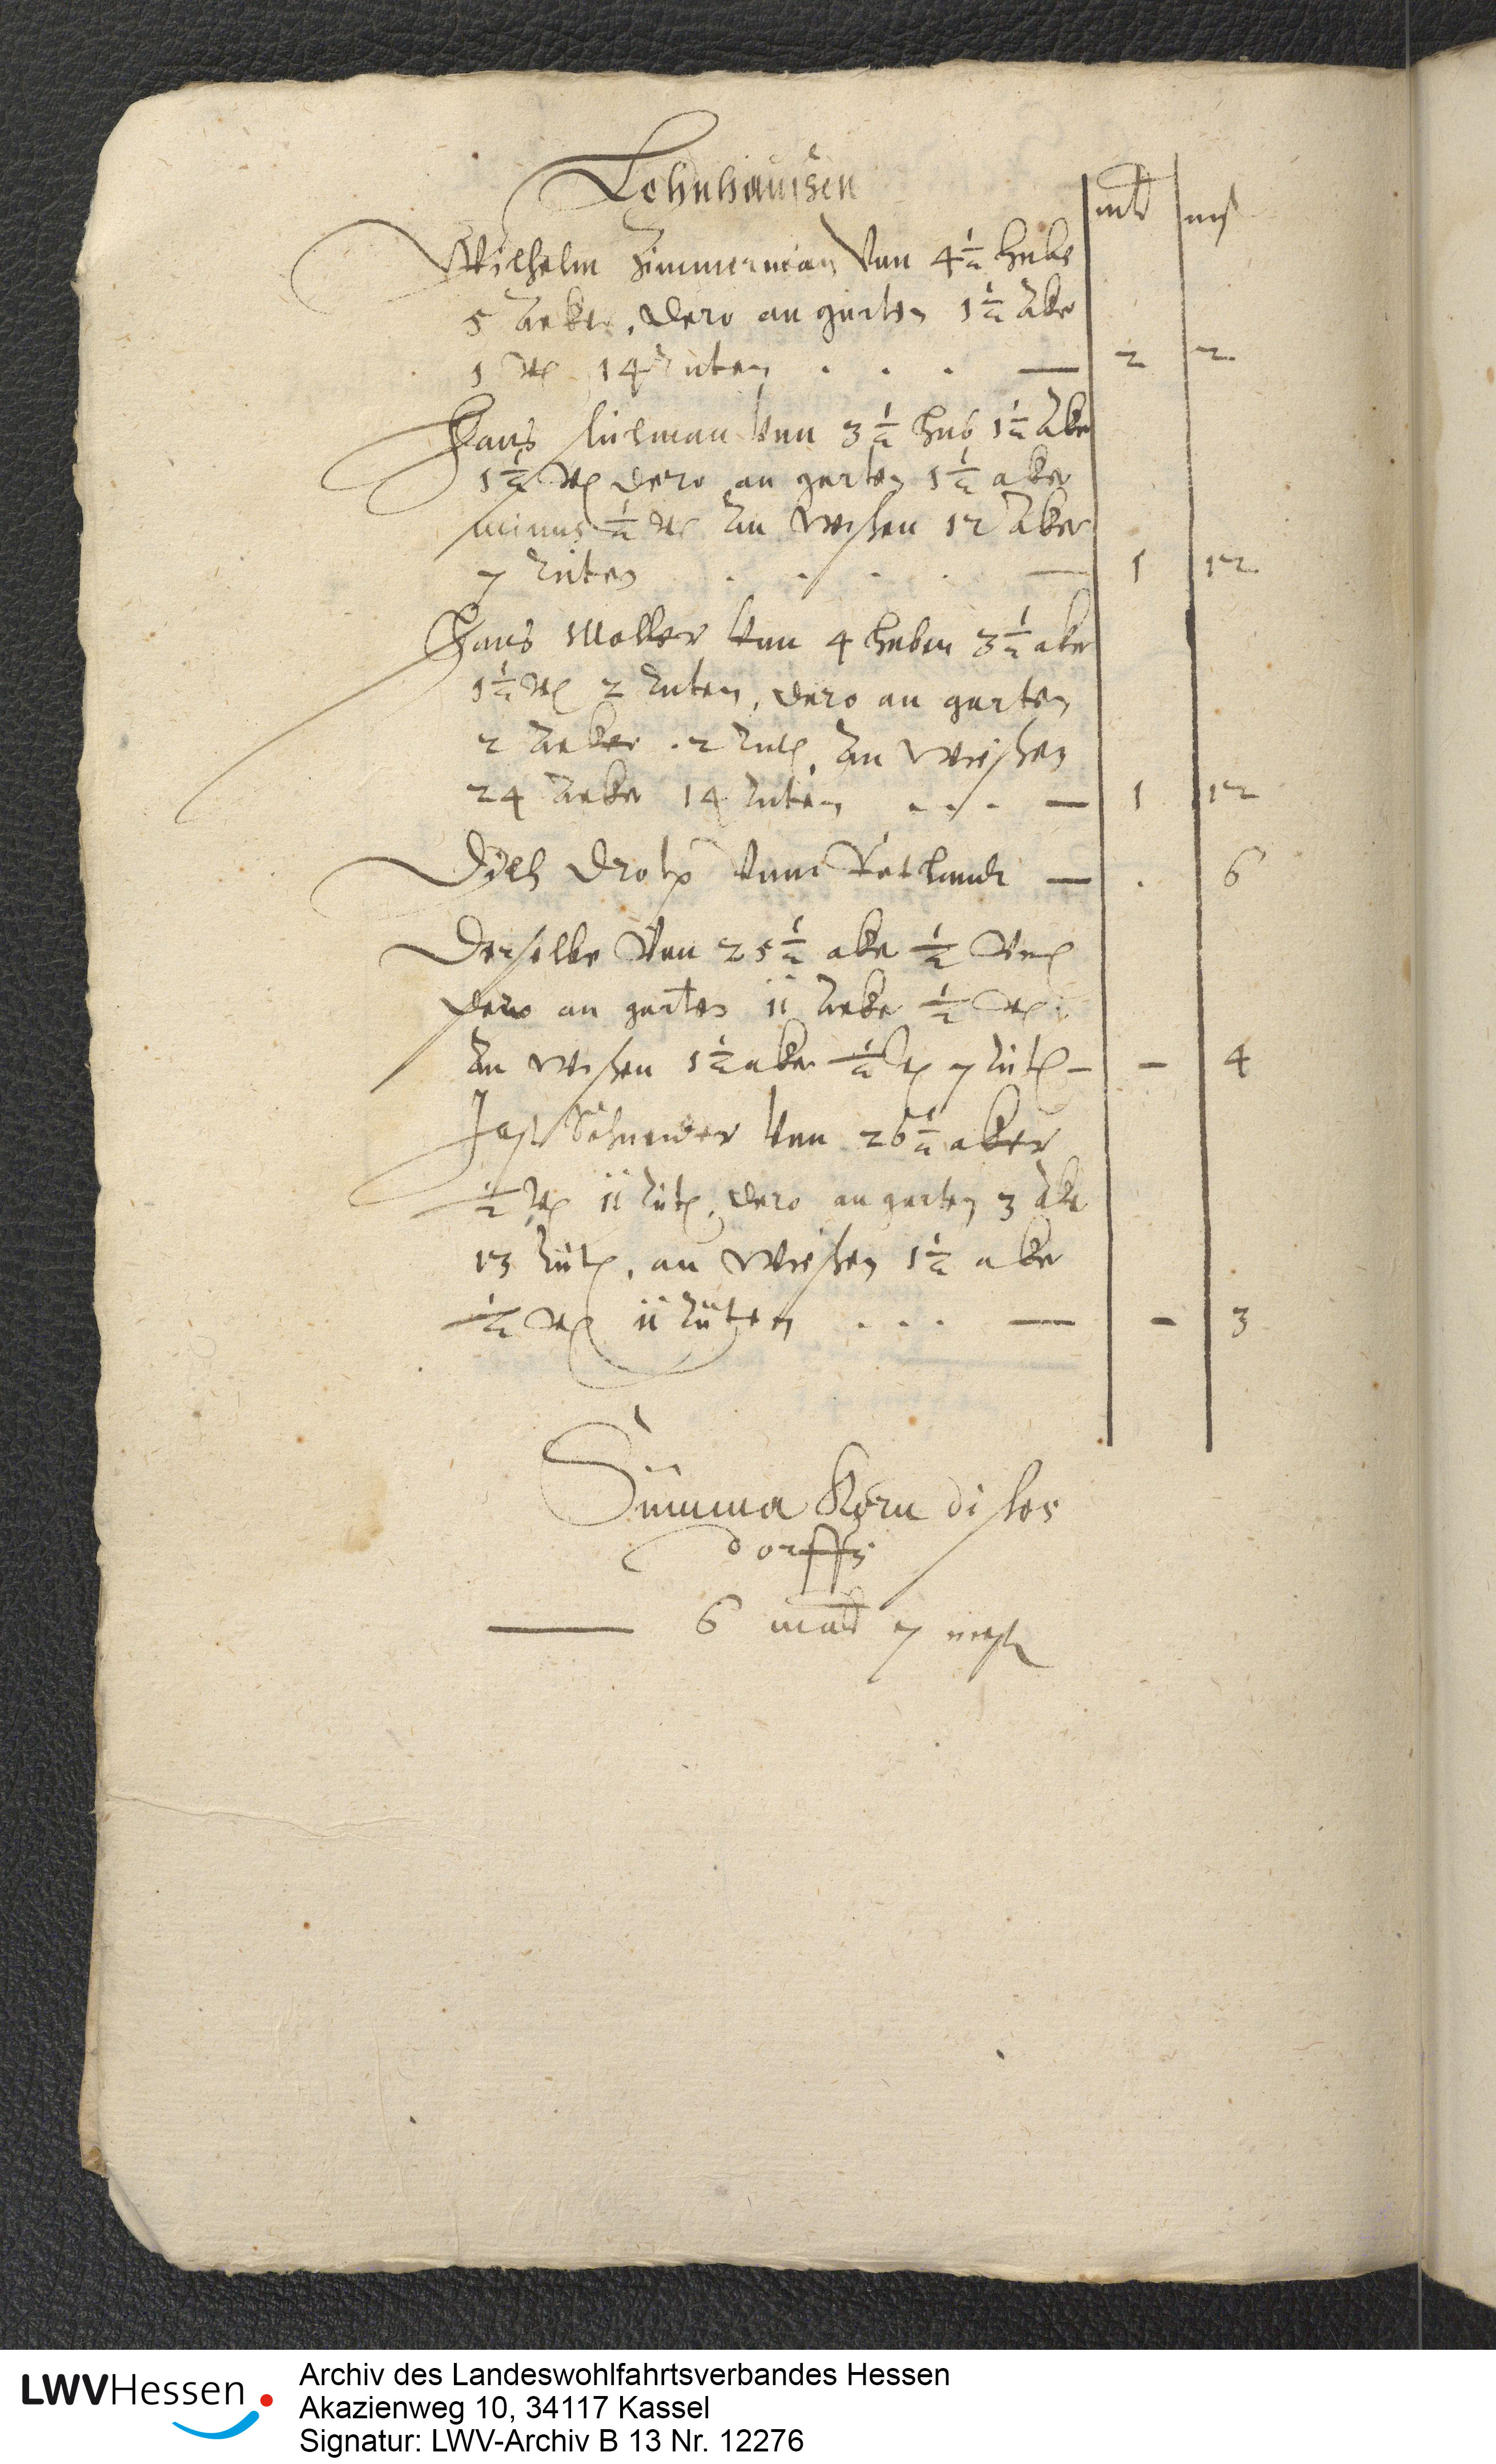 Lehnhausen
mld mß
Wilhelm Zimmerman Von 4 1/2 hube
5 Acker, dero an garten 1 1/2 Aker
1 14 ruten . . . — 2 2
Hans von 3 1/2 hub 1 1/2 Aker
1 1/2 dero an garten 1 1/2 aker
minus 1/2 An Wisen 12 Aker
7 Ruten . . . . — 1 12
Hans Moller von 4 huben 3 1/2 aker
1 1/2 2 Ruten, dero an garten
2 Acker . 2 Rut, An Wiesen
24 Acker 14 Ruten . . . — 1 12
vom Rotlandt — . 6
Derselbe Von 25 1/2 aker 1/2
dero an garten 11 Acker 1/2
An Wisen 1 1/2 aker 1/2 7 Rut — – 4
Jost Schneider von 26 1/2 aker
1/2 11 Rut, dero an garten 3 Aker
13 Rut, an Wiesen 1 1/2 aker
1/2 11 Ruten . . . — – 3
Summa Korn dises
dorffs
— 6 mald 7 mest
LWVHessen
Archiv des Landeswohlfahrtsverbandes Hessen
Akazienweg 10, 34117 Kassel
Signatur: LWV-Archiv B 13 Nr. 12276